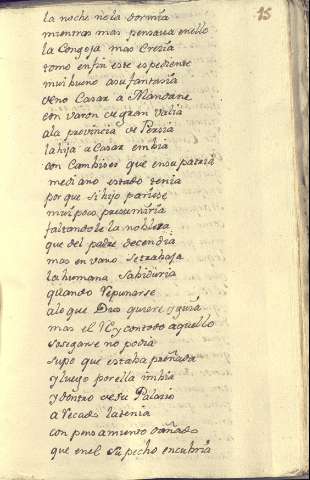 15
la noche no la dormia
mientras mas pensava en ello
la Congoja mas Crecia
tomo en fin este espediente
mui bueno a su fantasia
de no Casar a Mandane
con varon de gran valia
a la provincia de Persia
la hija a Casar embia
con Cambises que en su patria
mediano estado tenia
por que si hijo pariese
mui poco presumiria
faltandole la nobleza
que del padre decendia
mas en vano se trabaja
la humana Sabiduria
quando repunarse
a lo que Dios quiere y guia
mas el Rey con todo aquello
sosegarse no podia
supo que estaba preñada
y luego por ella imbia
y dentro de su Palacio
a recado la tenia
con pensamiento dañado
que en el Su pecho encubria